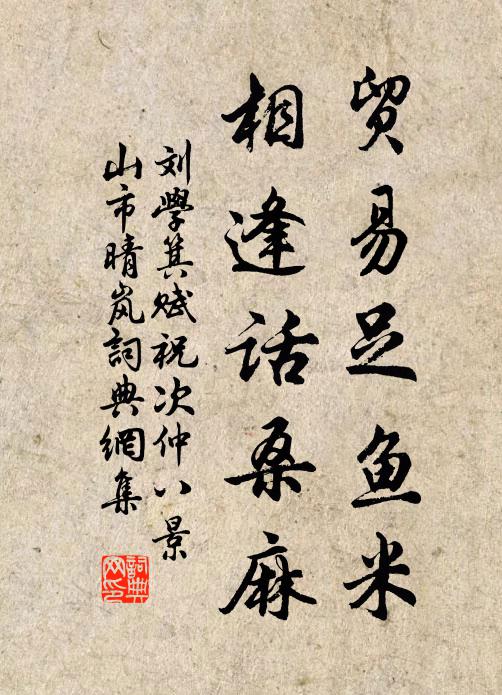 贸易足鱼米
相逢话桑麻
刘學箕赋祝次仲八景
山市晴岚詞典網集
詞典网印